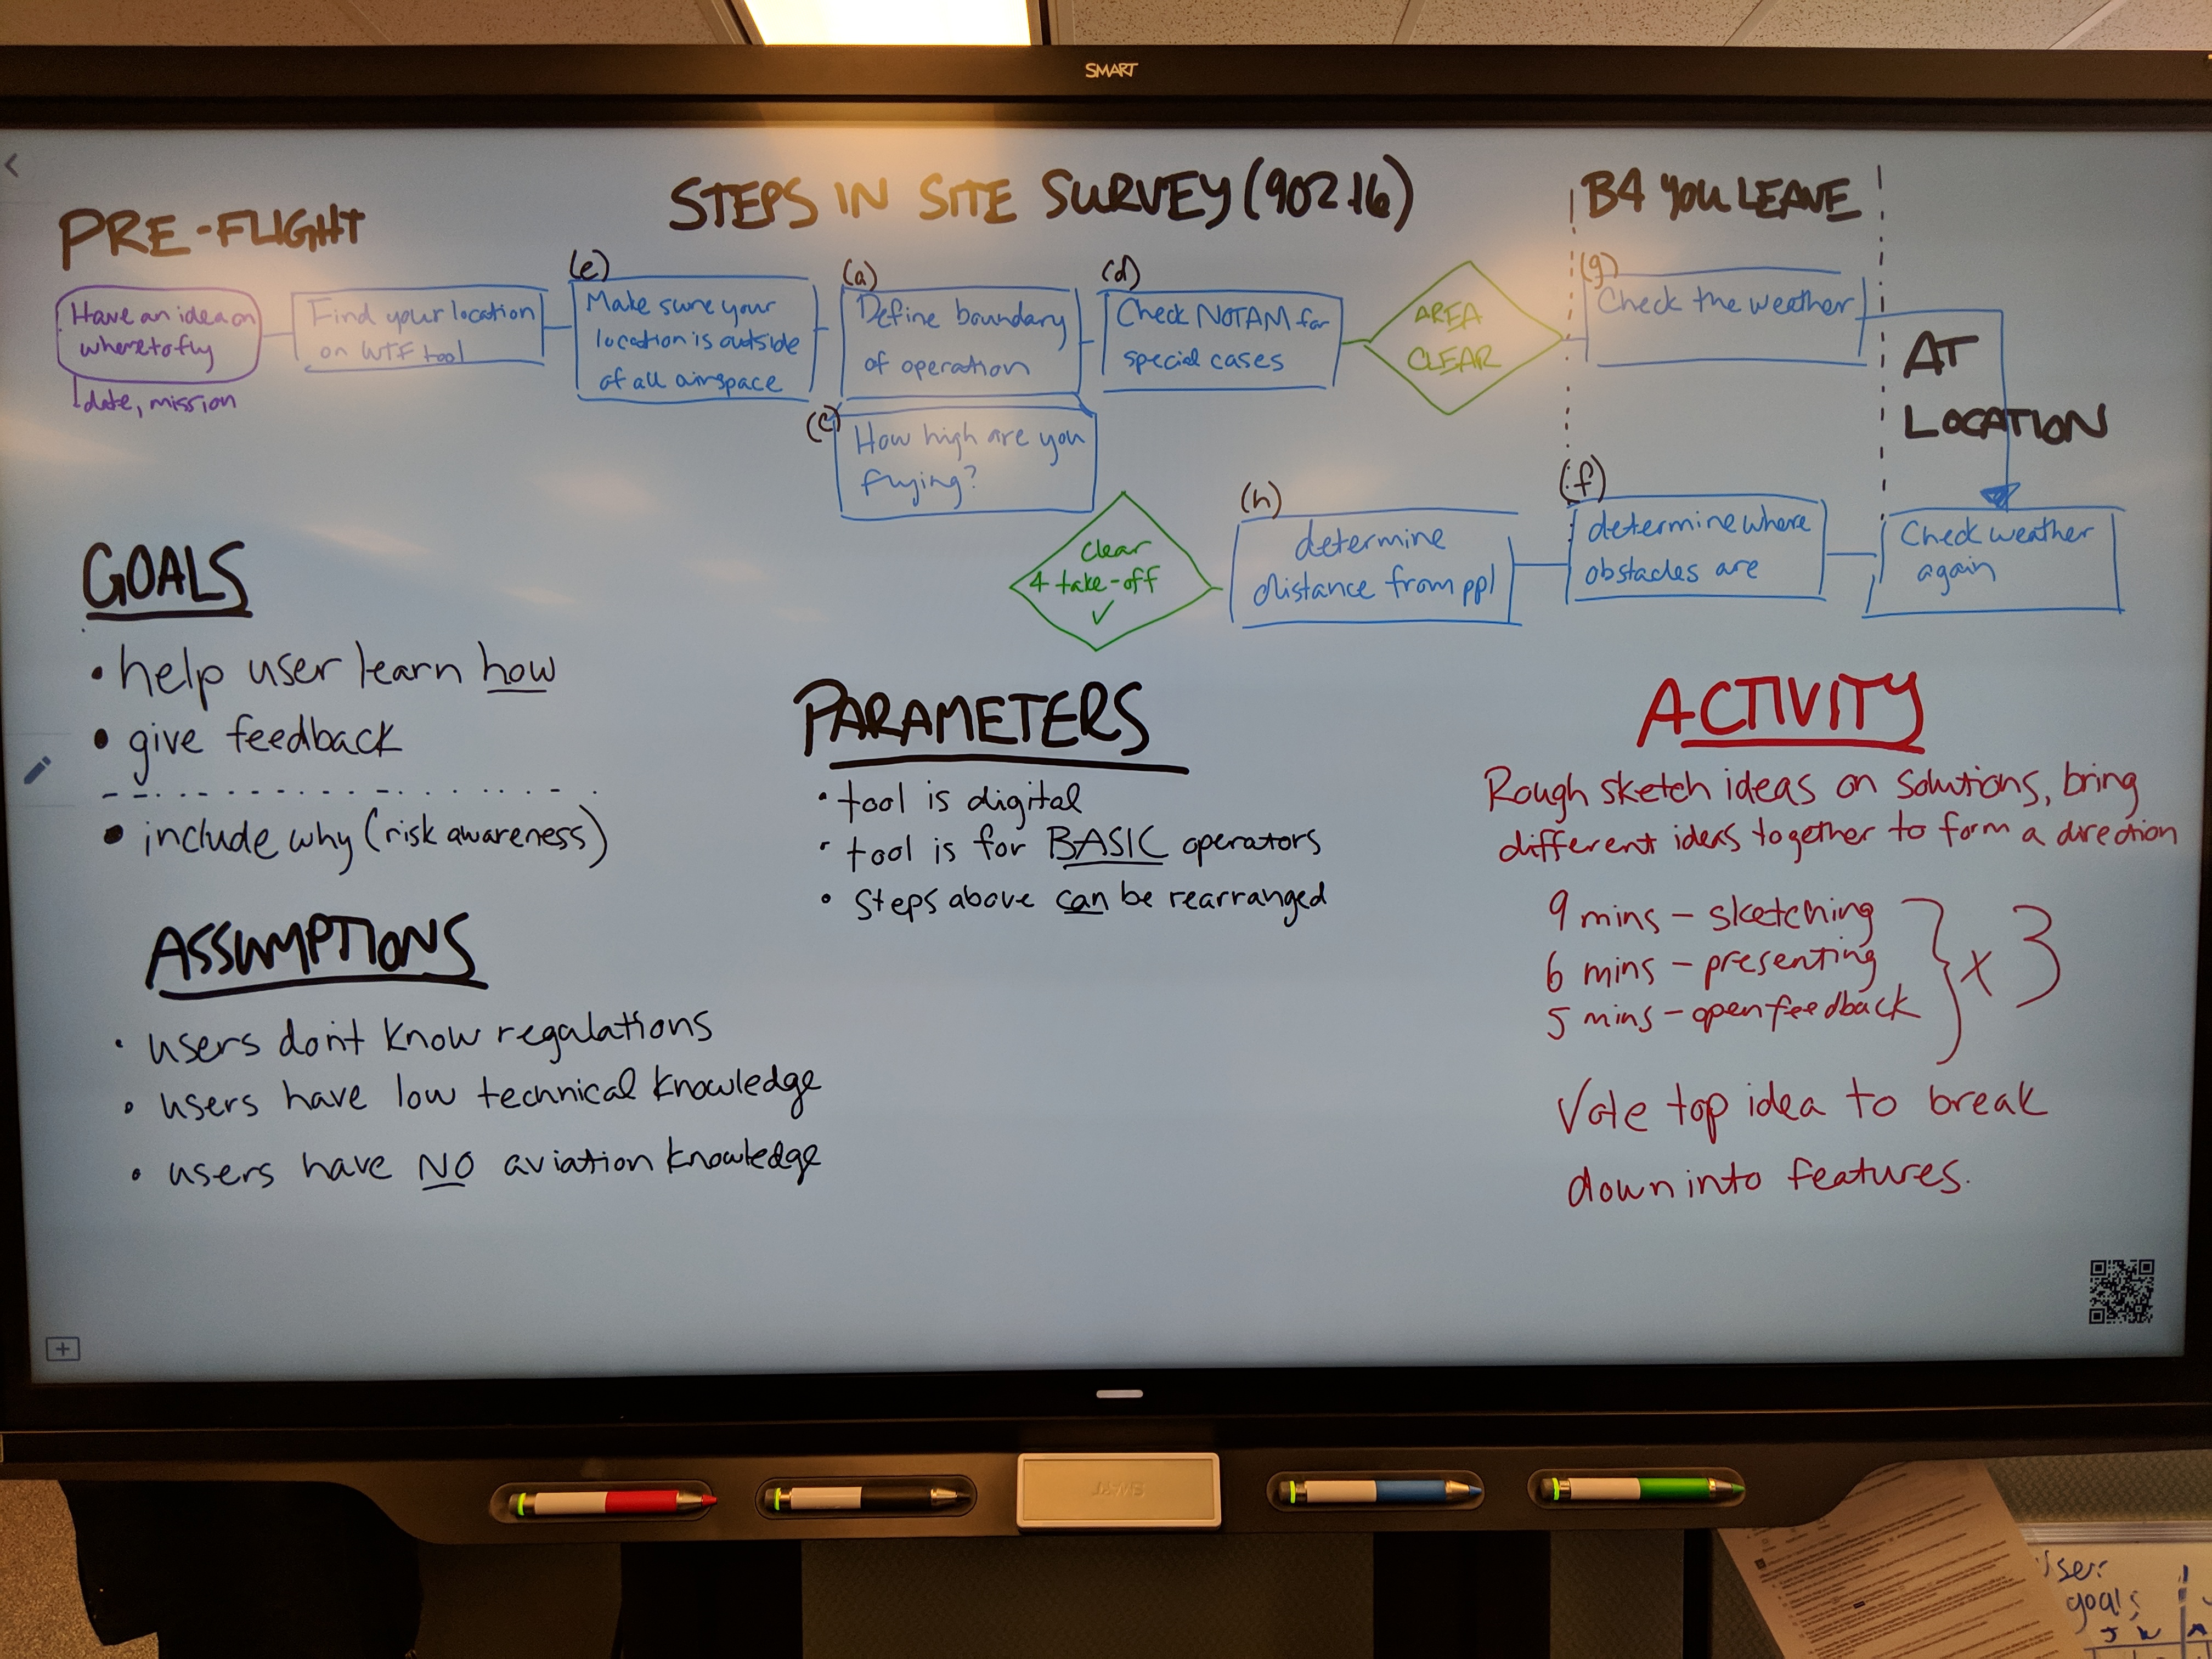 SMART
PRE-FLIGHT
STEPS IN SITE SURVEY (902.16)
B4 YOU LEAVE
Have an idea on
where to fly
date, mission
Find your location
on WTF tool
(e)
Make sure your
location is outside
of all airspace
(a)
Define boundary
of operation
(c)
How high are you
flying?
(d)
Check NOTAM for
special cases
AREA
CLEAR
(g)
Check the weather
AT
LOCATION
Check weather
again
(f)
determine where
obstacles are
(h)
determine
distance from ppl
Clear
4 take-off
✓
GOALS
• help user learn how
• give feedback
• include why (risk awareness)
ASSUMPTIONS
• users don't know regalations
• users have low technical knowledge
• users have NO aviation knowledge
PARAMETERS
• tool is digital
• tool is for BASIC operators
• Steps above can be rearranged
ACTIVITY
Rough sketch ideas on solutions, bring
different ideas together to form a direction
9 mins - sketching
6 mins - presenting
5 mins - open feedback
} x 3
Vote top idea to break
down into features.
SMART
User
goals